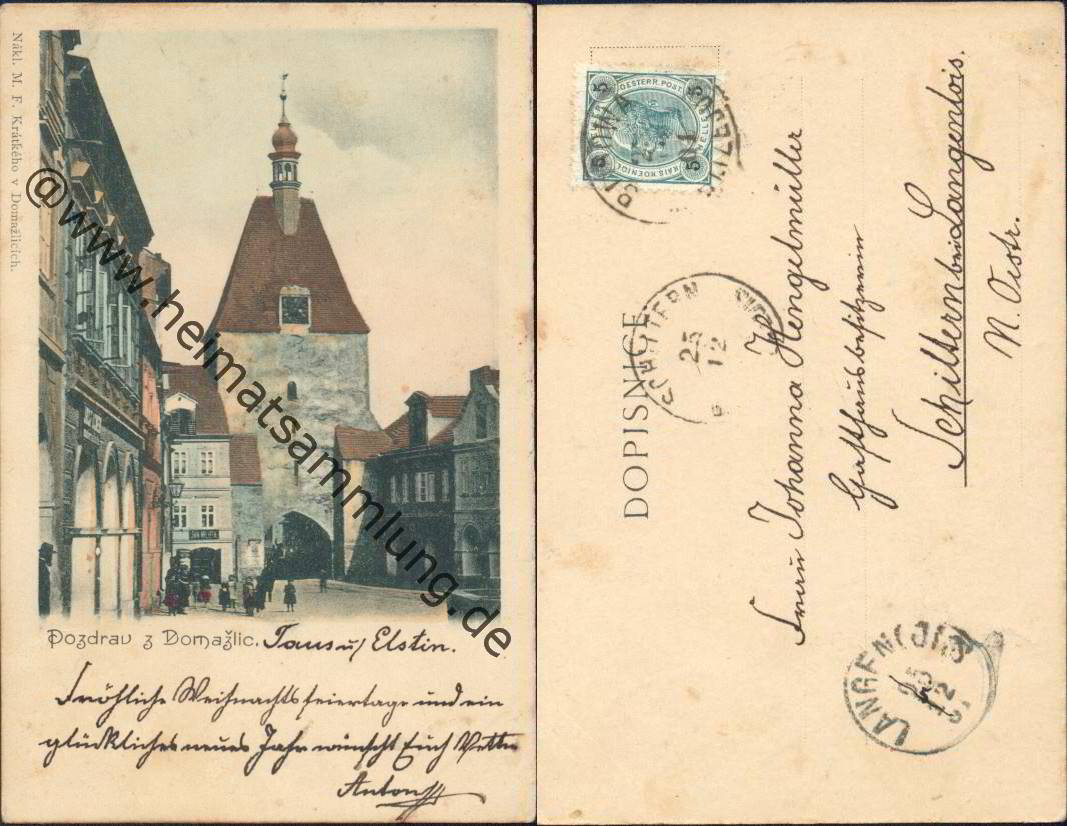 Nákl. M. F. Krátkého v Domažlicích.
@www.heimatsammlung.de
Pozdrav z Domažlic. Taus u/ Elstin.
Fröhliche Weihnachtsfeiertage und ein
glückliches neues Jahr wünscht Euch Vetter
Anton
OESTERR. POST.
KAIS. KOENIGL.
5 5
5 5
DOPISNICE
SCHILTERN
25
12
Frau Johanna Hengelmüller
Gasthausbesitzerin
Schiltern bei Langenlois.
N. Oestr.
LANGENLOIS
25
12